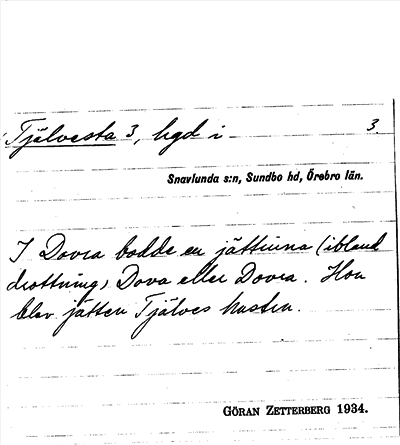 Tjälvesta 3, hgd i 3.
Snavlunda s:n, Sundbo hd, Örebro län.
I Dovra bodde en jättinna (ibland
drottning) Dova eller Dovra. Hon
blev jätten Tjälves hustru.
GÖRAN ZETTERBERG 1934.